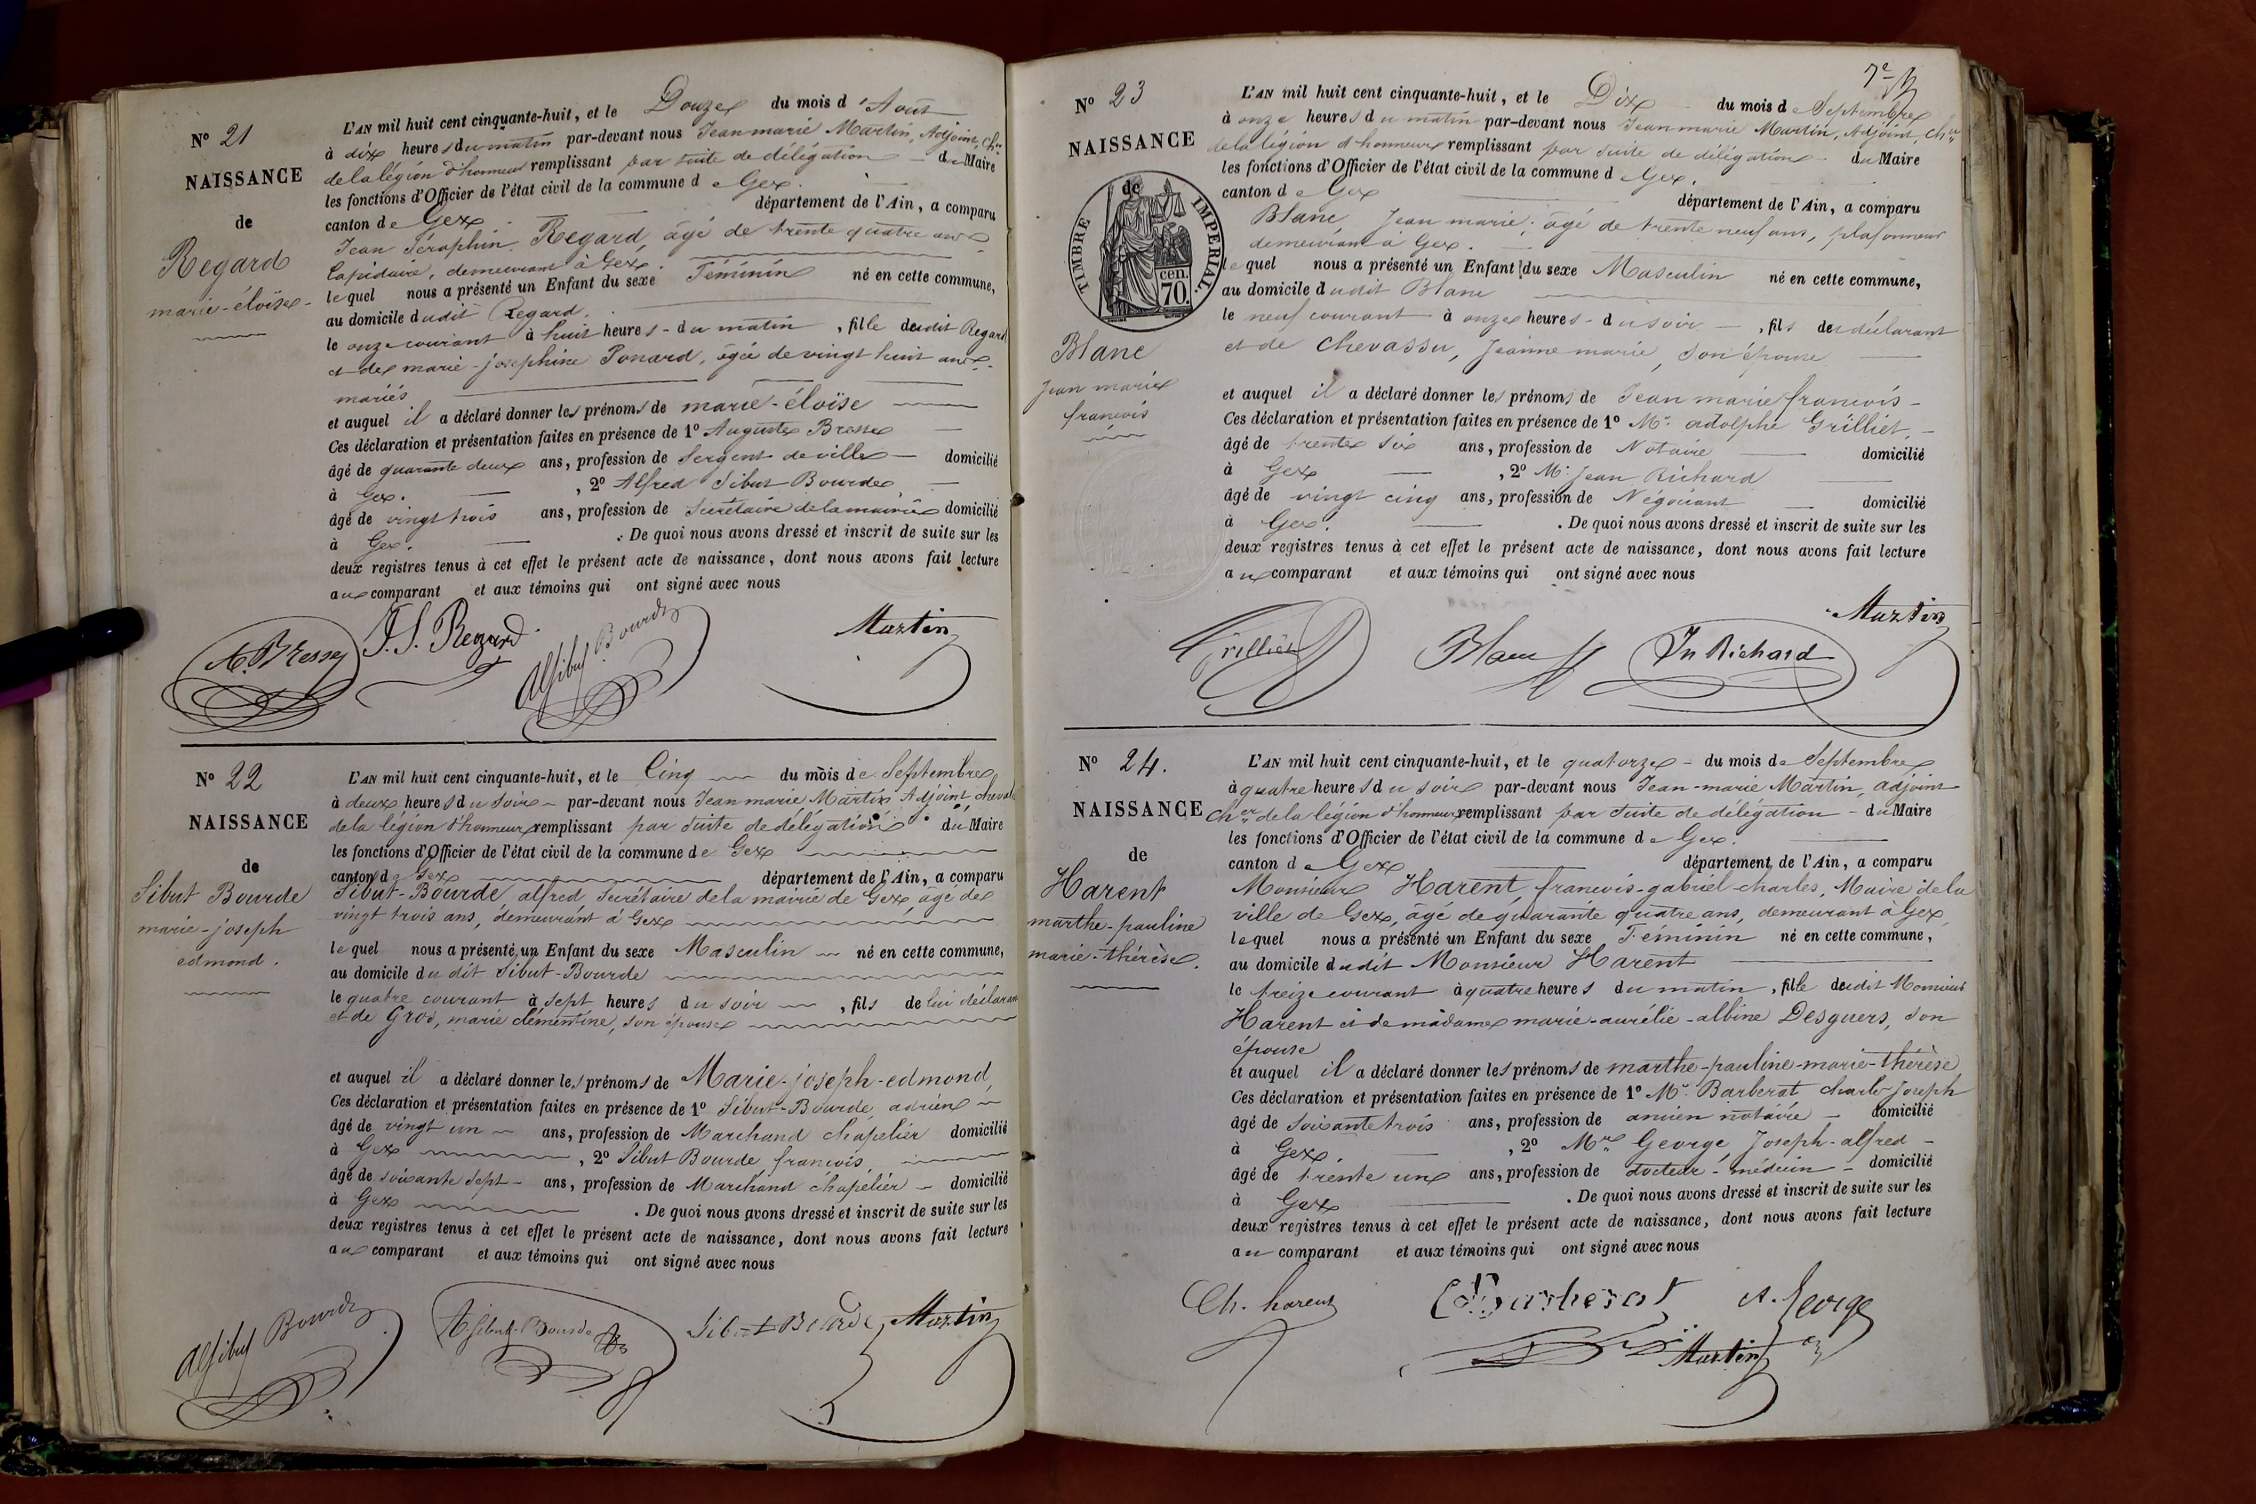 N° 21
NAISSANCE
de
Regard
marie-éloïse
L'AN mil huit cent cinquante-huit, et le Douze du mois d'Août
à dix heures du matin par-devant nous Jean marie Martin, Adjoint, Cher
de la légion d'honneur remplissant par suite de délégation du Maire
les fonctions d'Officier de l'état civil de la commune de Gex.
canton de Gex département de l'Ain, a comparu
Jean Séraphin Regard, âgé de trente quatre ans
Lapidaire, demeurant à Gex.
lequel nous a présenté un Enfant du sexe Féminin né en cette commune,
au domicile dudit Regard.
le onze courant à huit heures du matin, fille dudit Regard
et de marie-josephine Ponard, âgée de vingt huit ans
mariés
et auquel il a déclaré donner les prénoms de marie-éloïse
Ces déclaration et présentation faites en présence de 1° Auguste Bresse
âgé de quarante deux ans, profession de Sergent de ville domicilié
à Gex. , 2° Alfred Sibut Bourde,
âgé de vingt trois ans, profession de Secrétaire de la mairie domicilié
à Gex. . De quoi nous avons dressé et inscrit de suite sur les
deux registres tenus à cet effet le présent acte de naissance, dont nous avons fait lecture
au comparant et aux témoins qui ont signé avec nous
A. Bresse J. S. Regard Al Sibut Bourde Martin
N° 22
NAISSANCE
de
Sibut Bourde
marie-joseph
edmond.
L'AN mil huit cent cinquante-huit, et le Cinq du mois de Septembre
à deux heures du soir par-devant nous Jean marie Martin Adjoint, cheval
de la légion d'honneur remplissant par suite de délégation du Maire
les fonctions d'Officier de l'état civil de la commune de Gex
canton de Gex département de l'Ain, a comparu
Sibut-Bourde, alfred, Secrétaire de la mairie de Gex, âgé de
vingt trois ans, demeurant à Gex
lequel nous a présenté un Enfant du sexe Masculin né en cette commune,
au domicile du dit Sibut-Bourde
le quatre courant à sept heures du soir , fils de lui déclarant
et de Gros, marie clémentine, son épouse
et auquel il a déclaré donner les prénoms de Marie-joseph-edmond,
Ces déclaration et présentation faites en présence de 1° Sibut-Bourde, adrien
âgé de vingt un ans, profession de Marchand chapelier domicilié
à Gex , 2° Sibut Bourde, françois,
âgé de soixante sept ans, profession de Marchand chapelier domicilié
à Gex . De quoi nous avons dressé et inscrit de suite sur les
deux registres tenus à cet effet le présent acte de naissance, dont nous avons fait lecture
au comparant et aux témoins qui ont signé avec nous
Al Sibut Bourde A Sibut-Bourde Sibut Bourde Martin
7e
N° 23
NAISSANCE
de
TIMBRE IMPERIAL.
70. cen.
Blanc
Jean marie
françois
L'AN mil huit cent cinquante-huit, et le Dix du mois de Septembre
à onze heures du matin par-devant nous Jean marie Martin, Adjoint, Cher
de la légion d'honneur remplissant par suite de délégation du Maire
les fonctions d'Officier de l'état civil de la commune de Gex.
canton de Gex département de l'Ain, a comparu
Blanc, Jean marie, âgé de trente neuf ans, plafonneur
demeurant à Gex.
lequel nous a présenté un Enfant du sexe Masculin né en cette commune,
au domicile dudit Blanc
le neuf courant à onze heures du soir , fils du déclarant
et de Chevassu, Jeanne marie, son épouse
et auquel il a déclaré donner les prénoms de Jean marie françois
Ces déclaration et présentation faites en présence de 1° Mr. adolphe Grilliet,
âgé de trente six ans, profession de Notaire domicilié
à Gex , 2° Mr. Jean Richard
âgé de vingt cinq ans, profession de Négociant domicilié
à Gex. . De quoi nous avons dressé et inscrit de suite sur les
deux registres tenus à cet effet le présent acte de naissance, dont nous avons fait lecture
au comparant et aux témoins qui ont signé avec nous
Grilliet Blanc Jn Richard Martin
N° 24.
NAISSANCE
de
Harent
marthe-pauline
marie-thérèse.
L'AN mil huit cent cinquante-huit, et le quatorze du mois de Septembre
à quatre heures du soir par-devant nous Jean-marie Martin, adjoint
Cher de la légion d'honneur remplissant par suite de délégation du Maire
les fonctions d'Officier de l'état civil de la commune de Gex.
canton de Gex département de l'Ain, a comparu
Monsieur Harent, françois-gabriel-charles, Maire de la
ville de Gex, âgé de quarante quatre ans, demeurant à Gex,
lequel nous a présenté un Enfant du sexe Féminin né en cette commune,
au domicile dudit Monsieur Harent
le treize courant à quatre heures du matin , fille dudit Monsieur
Harent et de madame marie-aurélie-albine Desguers, son
épouse
et auquel il a déclaré donner les prénoms de marthe-pauline-marie-thérèse
Ces déclaration et présentation faites en présence de 1° Mr. Barberat charle-Joseph
âgé de soixante trois ans, profession de ancien notaire domicilié
à Gex , 2° Mr George, Joseph-alfred
âgé de trente un ans, profession de docteur-médecin domicilié
à Gex . De quoi nous avons dressé et inscrit de suite sur les
deux registres tenus à cet effet le présent acte de naissance, dont nous avons fait lecture
au comparant et aux témoins qui ont signé avec nous
Ch. harent Barberat A. George
Martin